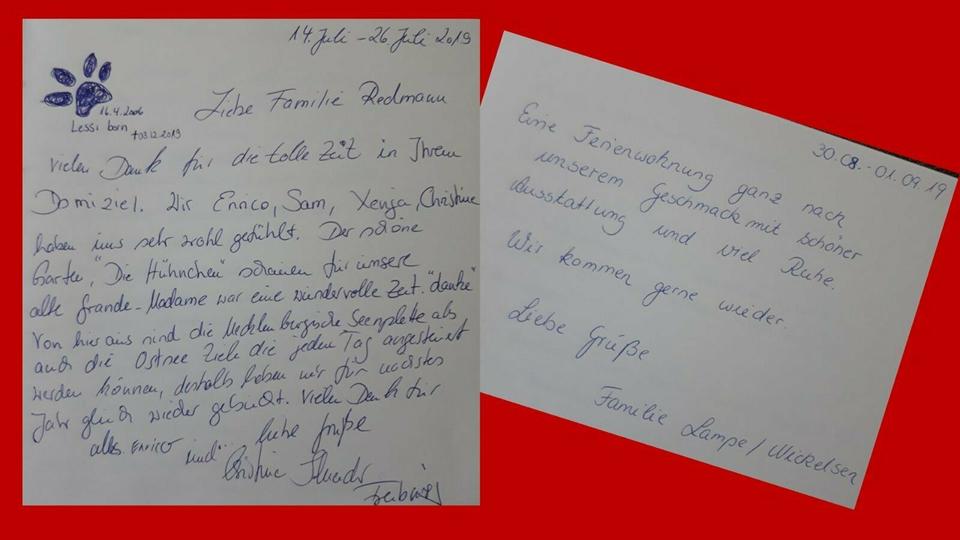 14. Juli - 26. Juli 2019
16.4.2006
Lessi born
+03.12.2019
Liebe Familie Redmann
vielen Dank für die tolle Zeit in Ihrem
Domiziel. Wir Enrico, Sam, Xenja, Christine
haben uns sehr wohl gefühlt. Der schöne
Garten, "Die Hühnchen" schauen für unsere
alte Grande-Madame war eine wundervolle Zeit. "danke"
Von hier aus sind die Mecklenburgische Seenplatte als
auch die Ostsee Ziele die jeden Tag angesteuert
werden können, deshalb haben wir für nächstes
Jahr gleich wieder gebucht. Vielen Dank für
alles. ENRICO und liebe Grüße
Christine
30.08. - 01.09.19
Eine Ferienwohnung ganz nach
unserem Geschmack mit schöner
Ausstattung und viel Ruhe.
Wir kommen gerne wieder.
Liebe Grüße
Familie Lampe / Wickelsen